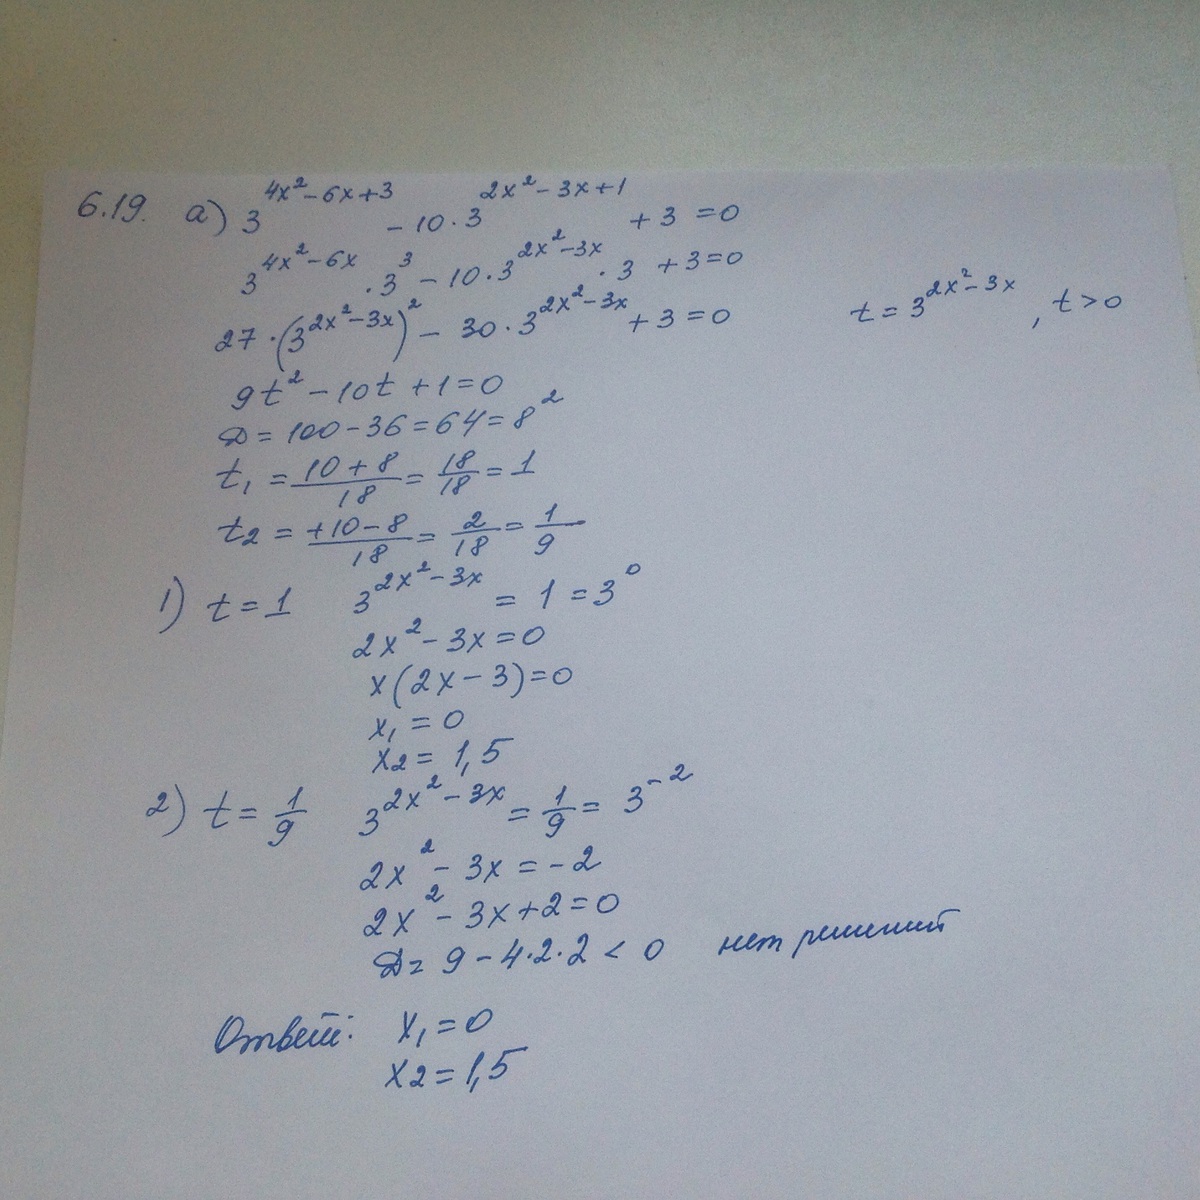 6.19. а) 3^{4x²-6x+3} - 10·3^{2x²-3x+1} + 3 = 0
3^{4x²-6x} · 3³ - 10·3^{2x²-3x} · 3 + 3 = 0
27·(3^{2x²-3x})² - 30·3^{2x²-3x} + 3 = 0 t = 3^{2x²-3x}, t > 0
9t² - 10t + 1 = 0
D = 100 - 36 = 64 = 8²
t₁ = (10+8)/18 = 18/18 = 1
t₂ = (+10-8)/18 = 2/18 = 1/9
1) t = 1 3^{2x²-3x} = 1 = 3⁰
2x² - 3x = 0
x(2x - 3) = 0
x₁ = 0
x₂ = 1,5
2) t = 1/9 3^{2x²-3x} = 1/9 = 3^{-2}
2x² - 3x = -2
2x² - 3x + 2 = 0
D = 9 - 4·2·2 < 0 нет решений
Ответ: x₁ = 0
x₂ = 1,5